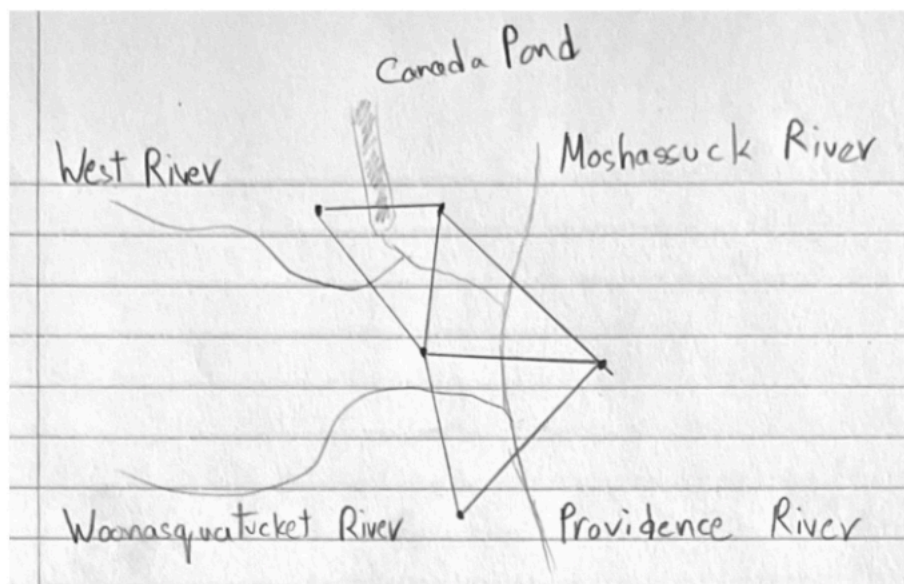 Canada Pond
West River
Moshassuck River
Woonasquatucket River
Providence River